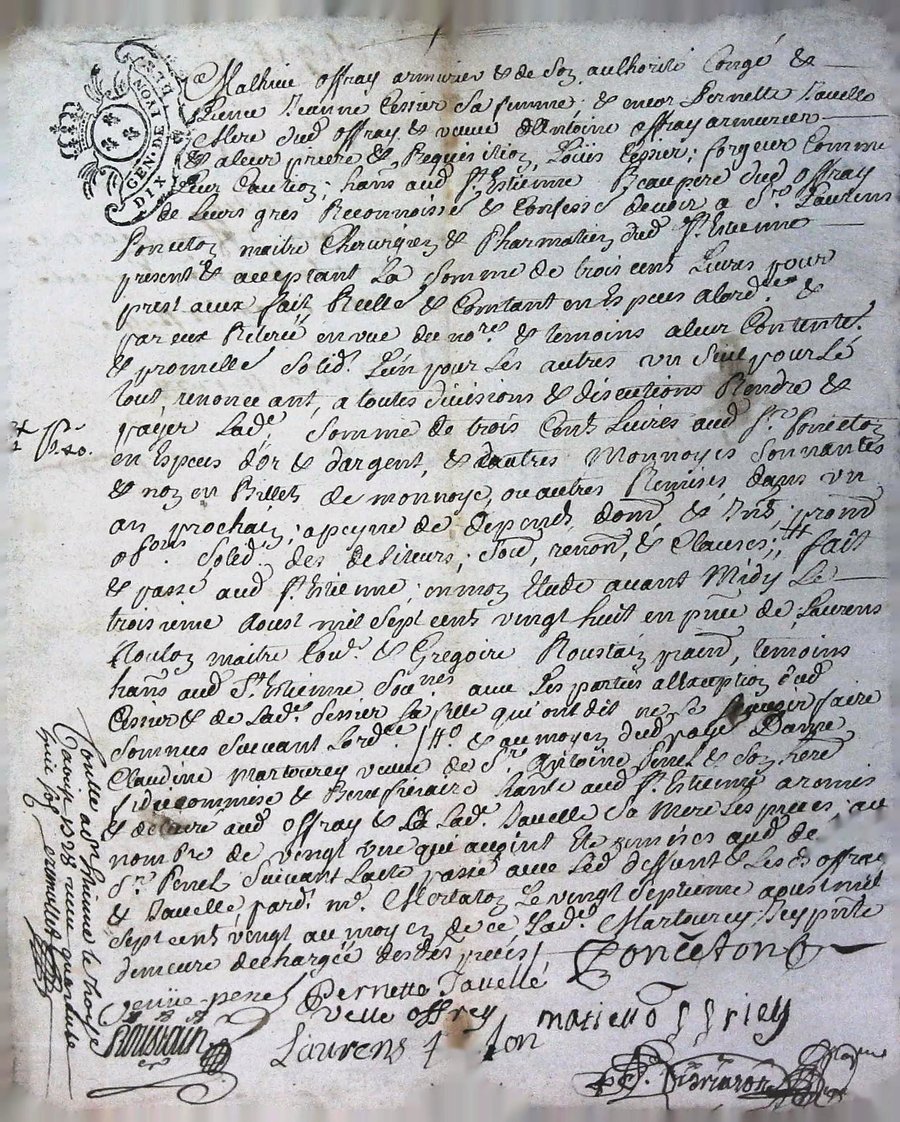 GEN. DE LYON
DIX
Mathieu offray armurier & de son authorité Congé &
Jeanne Tessier sa femme & encor Pernette Javelle
Mere dud offray & veuve d'Antoine offray armurier
& a leur priere & Requisition, Loüis Tessier, forgeur Comme
leur Caution, hans aud St Estienne Beaupere dud offray
de Leurs grés Reconnoissé & Confessé devoir a Sr Laurens
Ponceton maitre Chirurgien & Pharmatien dud St Estienne
present & acceptant La Somme de trois cent Livres pour
prest a eux fait Reelle & Comtant en Especes a lord.ce &
par eux Retiré en vue de no.re & temoins a leur Contente.
& promesse solid. L'un pour Les autres un Seul pour Le
tout renonceant, a toutes divisions & discutions Rendre &
payer Lad.e Somme de trois Cent Livres aud Sr Ponceton
en Especes d'or & d'argent, & d'autres Monnoyes Sonnantes
& non en Billets de monnoye, ou autres Remises dans un
an prochain, a peyne de depend, dom, & Int, prom
solid. des debiteurs, Soum, renon, & Clauses, # fait
& passé aud St Estienne, en mon Etude avant Midy Le
troisieme Aoust mil Sept cent vingt huit en pnce de Laurens
maitre & Gregoire Roustain temoins
hans aud St Estienne Soa.nes avec Les parties a l'exception dud
Tessier & de Lad. Tessier La fille qui ont dit ne Le faire
Sommés Suivant Lord.ce # & au moyen dud paye Dame
Claudine Martourey veuve de Sr Antoine Penel & Son here
fideicommise & Beneficiaire hante aud St Estienne a remis
& delivré aud offray & La Lad. Javelle Sa Mere Les pieces au
nombre de vingt une qui avoint Eté remises aud de
Sr Penel Suivant Lacte passé avec Led deffunt & Les d offray
& Javelle, pard. me. Le vingt Septieme aoust mil
Sept cent vingt au moyen de ce Lad.e Martourey y pnte
demeure dechargée desdes pieces
Ponceton
veüve penel
Pernette Javelle
veuve offrey
mathieu offrey
Roustain
Laurens
Controllé a St Etienne le troisé
aoust 1728 receu quarante